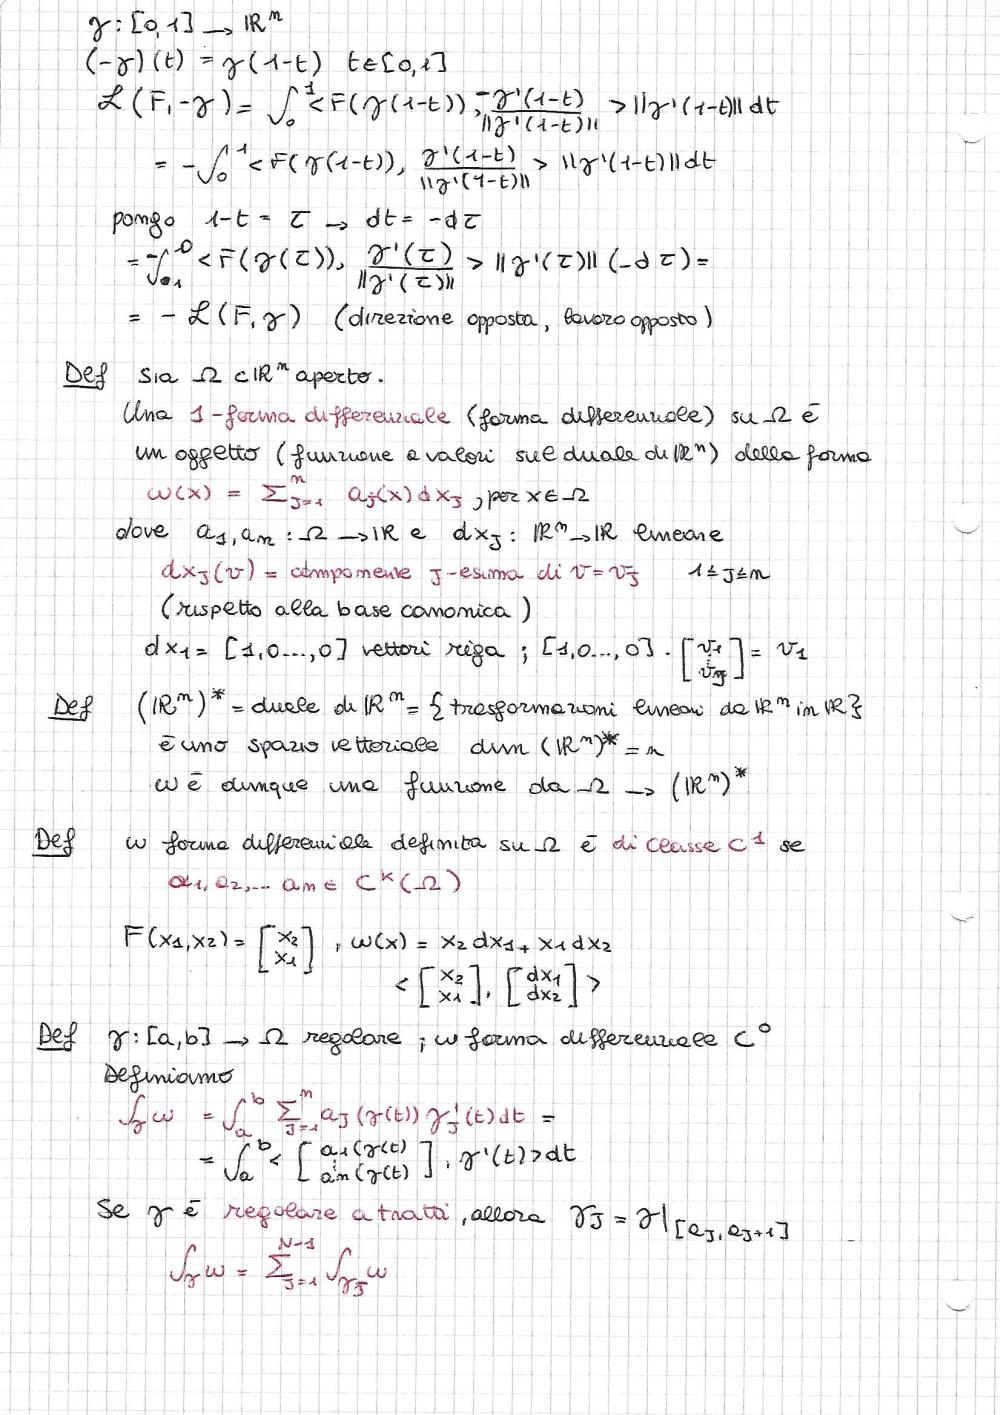 γ: [0,1] → ℝⁿ
(-γ)(t) = γ(1-t) t∈[0,1]
ℒ(F,-γ) = ∫₀¹ <F(γ(1-t)), -γ'(1-t)/||γ'(1-t)|| > ||γ'(1-t)|| dt
= -∫₀¹ <F(γ(1-t)), γ'(1-t)/||γ'(1-t)|| > ||γ'(1-t)|| dt
pongo 1-t = τ → dt = -dτ
= -∫₁⁰ <F(γ(τ)), γ'(τ)/||γ'(τ)|| > ||γ'(τ)|| (-dτ) =
= - ℒ(F,γ) (direzione opposta, lavoro opposto)
Def Sia Ω ⊂ ℝⁿ aperto.
Una 1-forma differenziale (forma differenziale) su Ω è
un oggetto (funzione a valori sul duale di ℝⁿ) della forma
ω(x) = Σⁿ_{J=1} a_J(x) dx_J, per x∈Ω
dove a₁, aₙ : Ω → ℝ e dx_J : ℝⁿ → ℝ lineare
dx_J(v) = componente J-esima di v = v_J 1≤J≤n
(rispetto alla base canonica)
dx₁ = [1,0...,0] vettori riga ; [1,0...,0] · [v₁ ⋮ v_J] = v₁
Def (ℝⁿ)* = duale di ℝⁿ = {trasformazioni lineari da ℝⁿ in ℝ}
è uno spazio vettoriale dim (ℝⁿ)* = n
ω è dunque una funzione da Ω → (ℝⁿ)*
Def ω forma differenziale definita su Ω è di classe C¹ se
a₁, a₂,... aₙ ∈ Cᵏ(Ω)
F(x₁,x₂) = [x₂ x₁], ω(x) = x₂ dx₁ + x₁ dx₂
< [x₂ x₁], [dx₁ dx₂] >
Def γ: [a,b] → Ω regolare ; ω forma differenziale C⁰
Definiamo
∫_γ ω = ∫ₐᵇ Σⁿ_{J=1} a_J(γ(t)) γ_J'(t) dt =
= ∫ₐᵇ < [a₁(γ(t) ⋮ aₙ(γ(t)], γ'(t)> dt
Se γ è regolare a tratti, allora γ_J = γ|_[a_J, a_{J+1}]
∫_γ ω = Σ^{N-1}_{J=1} ∫_{γ_J} ω